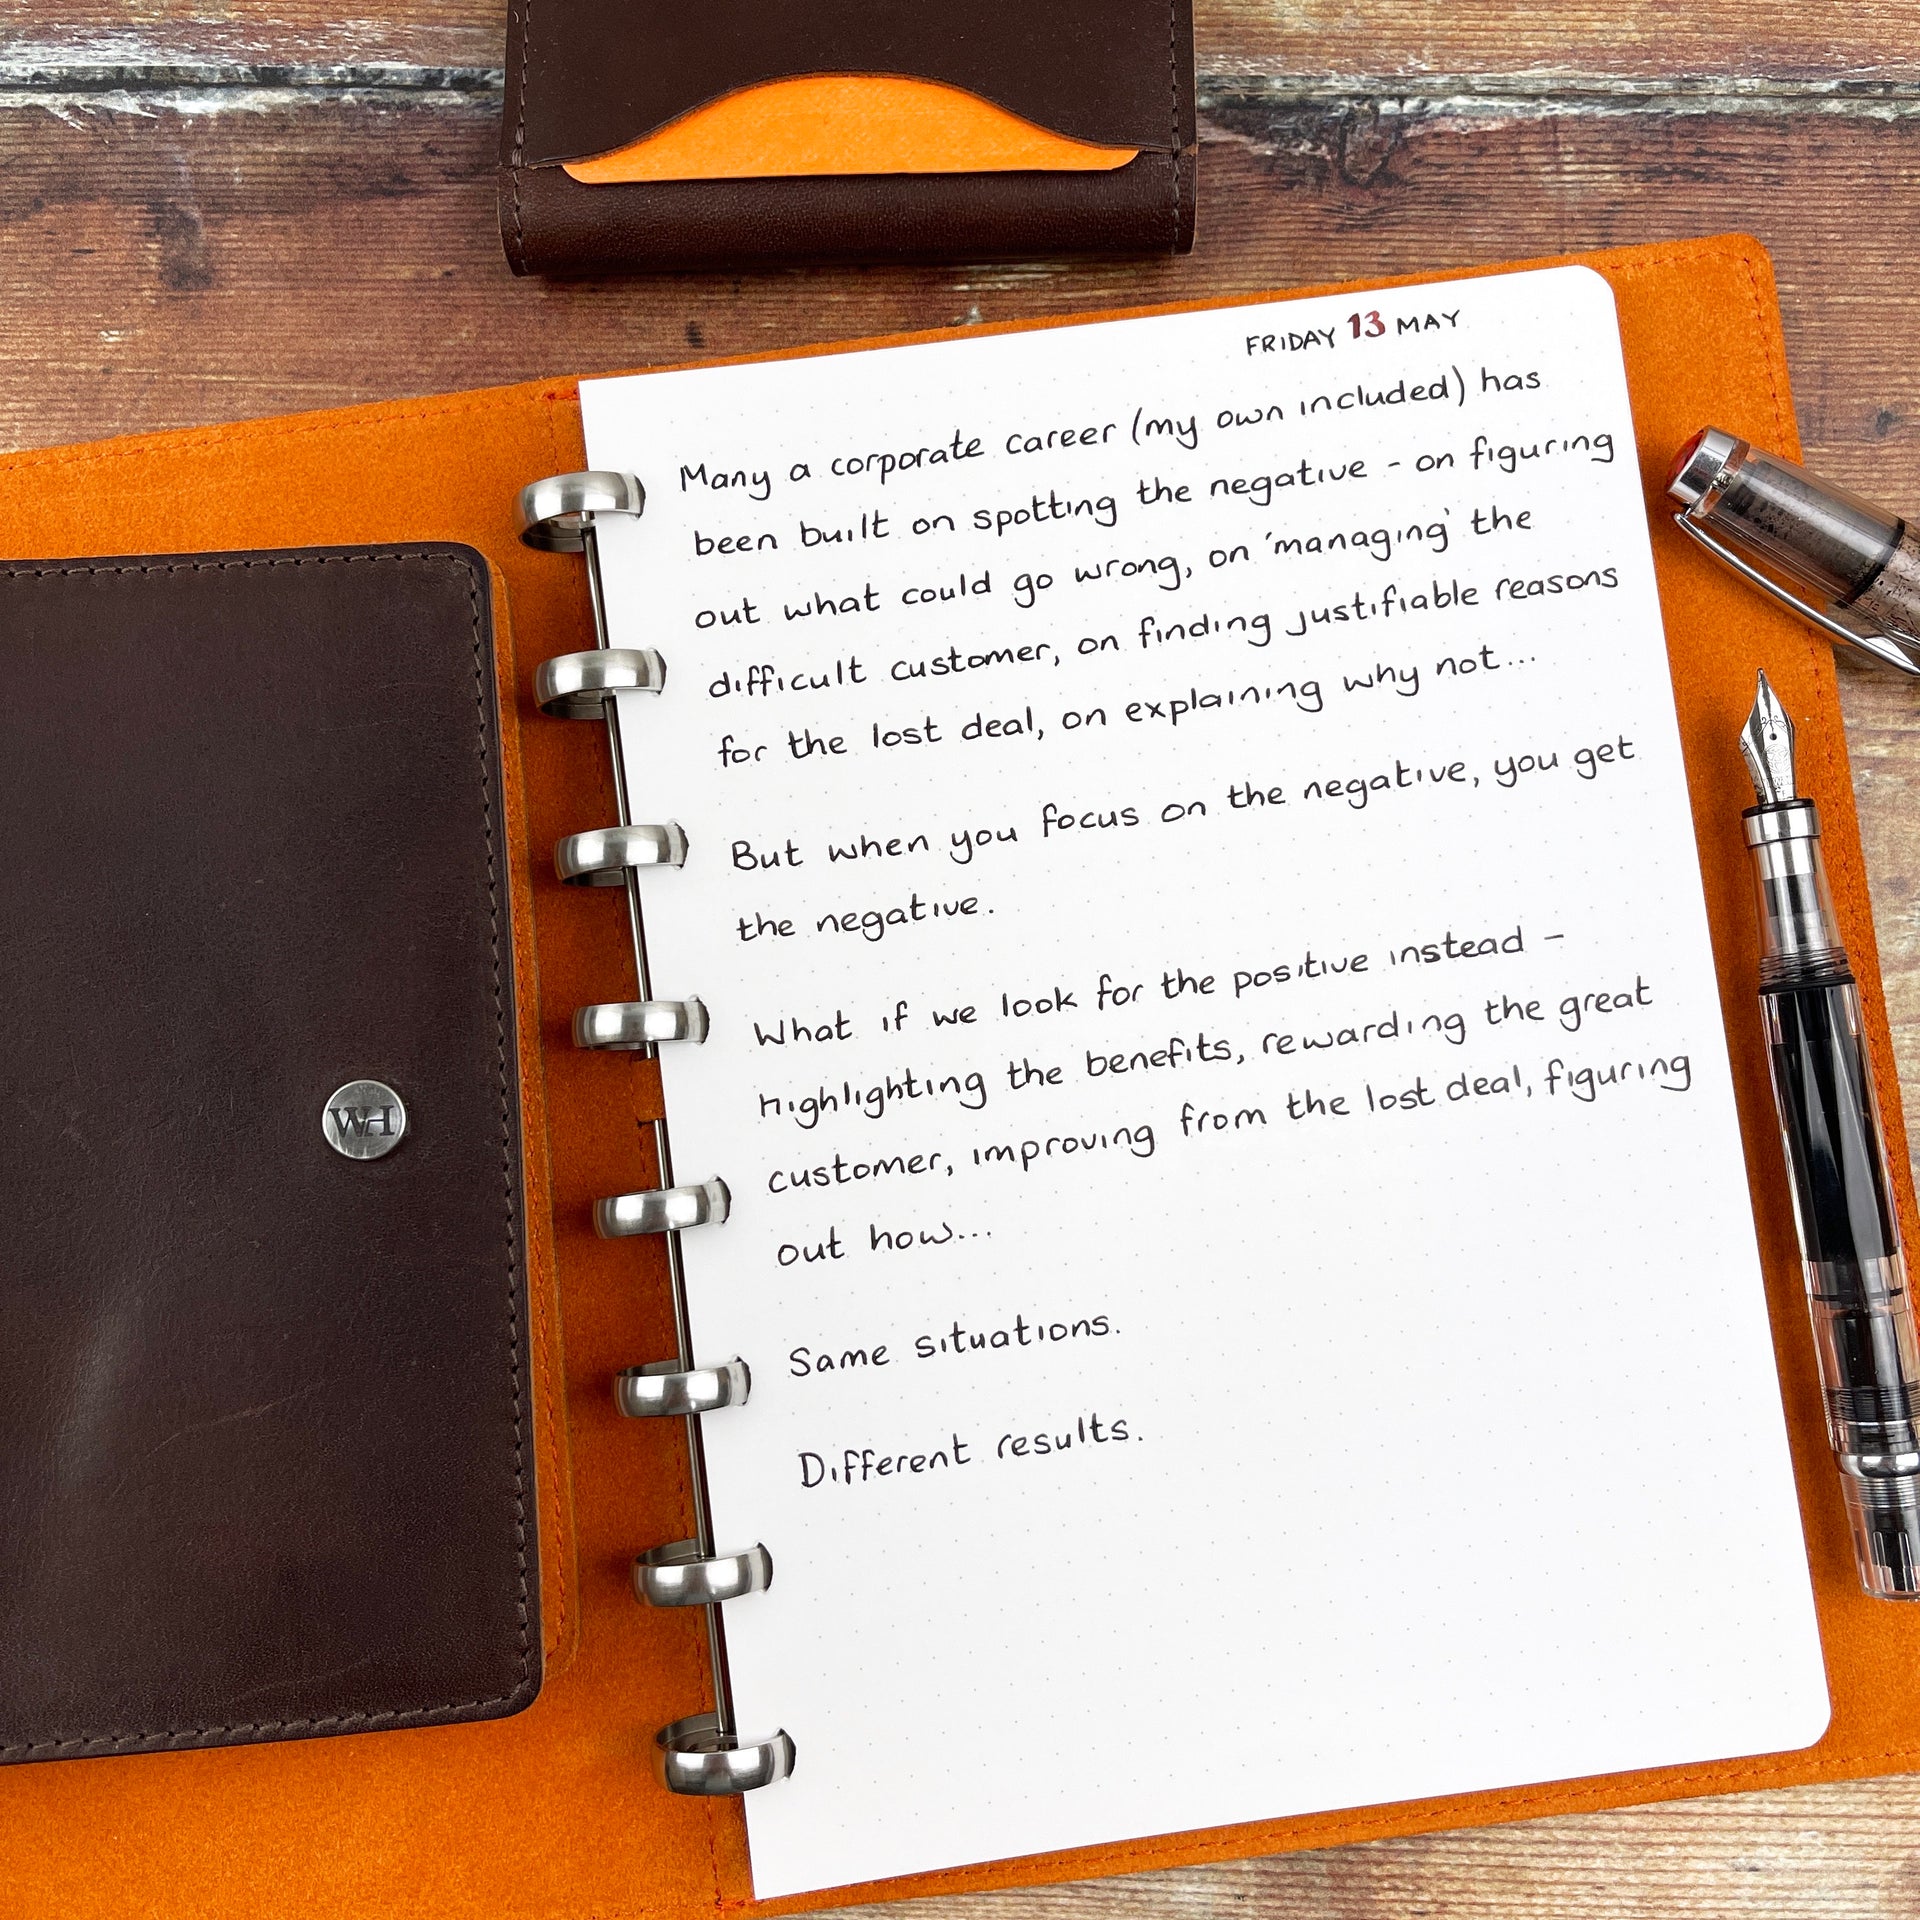 FRIDAY 13 MAY
Many a corporate career (my own included) has
been built on spotting the negative - on figuring
out what could go wrong, on 'managing' the
difficult customer, on finding justifiable reasons
for the lost deal, on explaining why not...
But when you focus on the negative, you get
the negative.
What if we look for the positive instead -
highlighting the benefits, rewarding the great
customer, improving from the lost deal, figuring
out how...
Same situations.
Different results.
WH